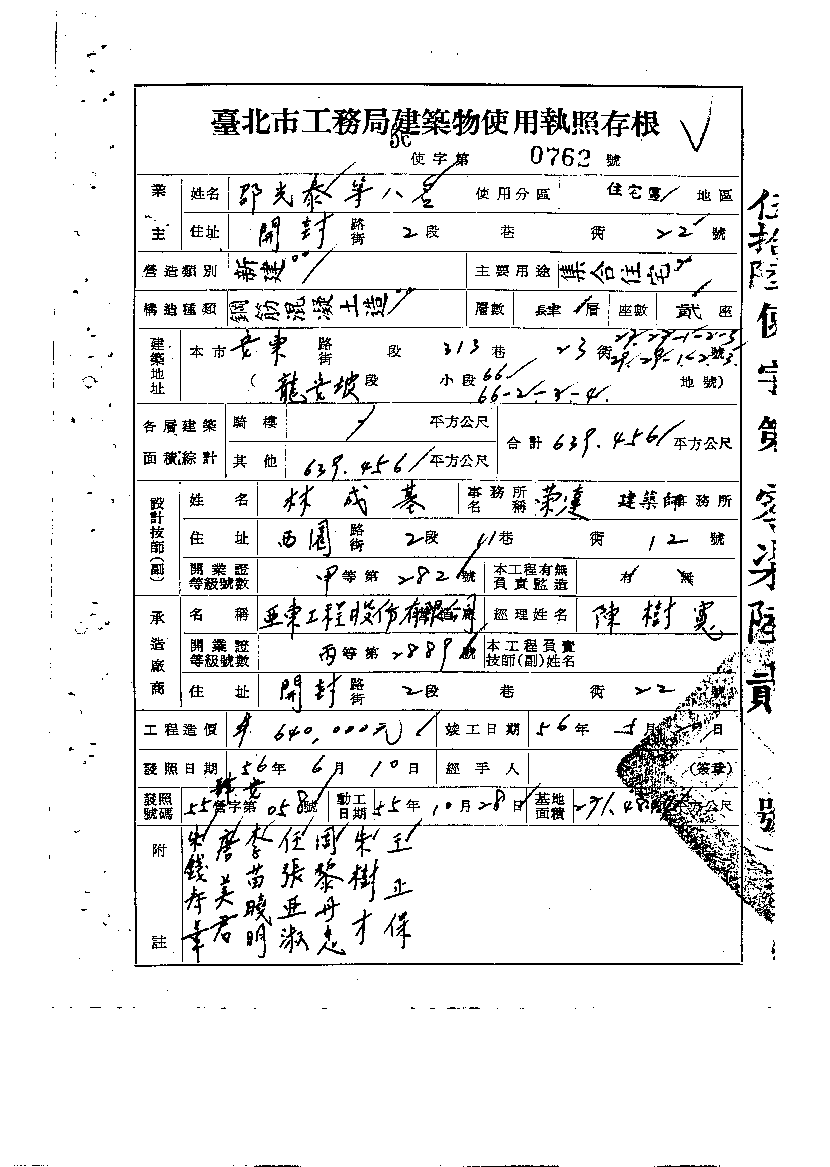 臺北市工務局建築物使用執照存根
56
使字第 0762 號
業主 姓名 邵光泰等八名 使用分區 住宅區 地區
住址 開封 路街 2段 巷 衖 22 號
營造類別 新建 主要用途 集合住宅
構造種類 鋼筋混凝土造 層數 肆層 座數 貳座
建築地址 本市 安東 路街 段 313巷 23衖 號
( 龍安坡段 小段 66 66-2-3-4 地號)
各層建築面積綜計 騎樓 平方公尺 合計 639.456 平方公尺
其他 639.456 平方公尺
設計技師(副) 姓名 林成基 事務所名稱 榮達 建築師事務所
住址 西園 路街 2段 巷 衖 12 號
開業證等級號數 甲等第282號 本工程有無負責監造 有 無
承造廠商 名稱 亞東工程股份有限公司 經理姓名 陳樹寬
開業證等級號數 丙等第2889號 本工程負責技師(副)姓名
住址 開封 路街 2段 巷 衖 22 號
工程造價 640,000元 竣工日期 56年 5月 日
發照日期 56年 6月 10日 經手人 (簽章)
發照號碼 55營字第058號 動工日期 55年10月28日 基地面積 平方公尺
附註
王正保
朱樹才
周黎丹忠
任張亞淑
李苗曉明
唐美君
朱錢存華
伍拾陸使字第零柒陸貳號